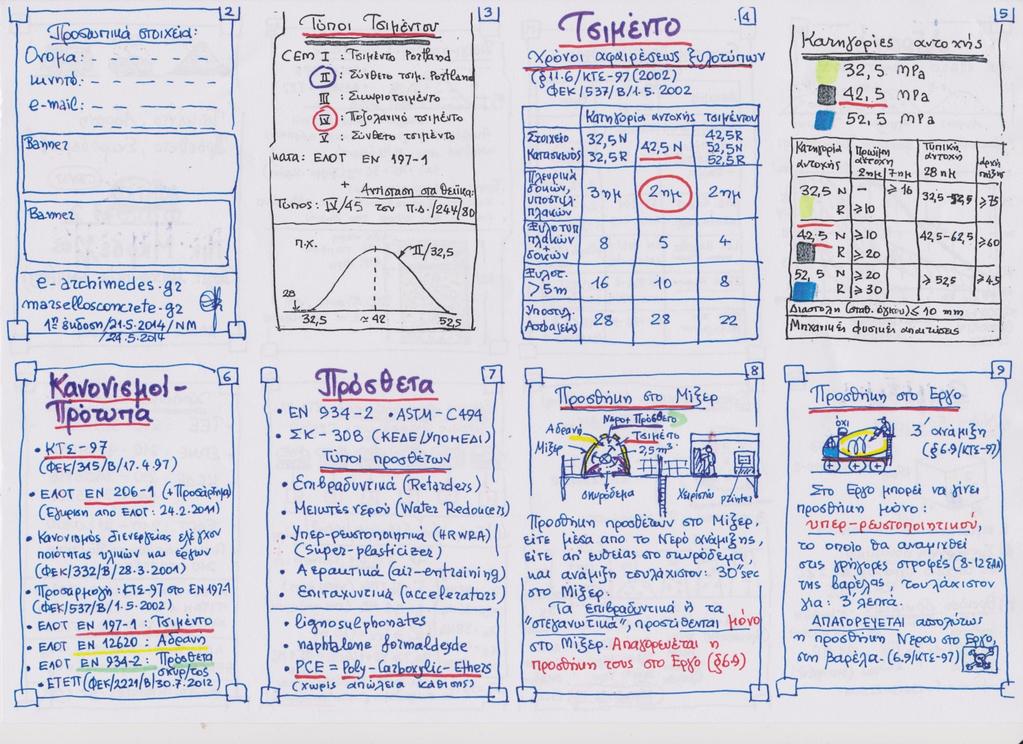 2
Προσωπικά στοιχεία:
Όνομα:
κινητό:
e-mail:
Banner
Banner
e-archimedes.gr
marsellosconcrete.gr
1η έκδοση/21.5.2014/ΝΜ
/24.5.2014
3
Τύποι Τσιμέντου
CEM I : Τσιμέντο Portland
II : Σύνθετο τσιμ. Portland
III : Σκωριοτσιμέντο
IV : Ποζολανικό τσιμέντο
V : Σύνθετο τσιμέντο
κατα: ΕΛΟΤ EN 197-1
+ Αντίσταση στα θειϊκα:
Τύπος: IV/45 του π.δ./244/80
π.χ.
II/32,5
28
32,5 ≈42 52,5
4
Τσιμέντο
Χρόνοι αφαιρέσεως ξυλοτύπων
(§11.6/ΚΤΣ-97(2002)
ΦΕΚ/537/Β/1.5.2002
Κατηγορία αντοχής τσιμέντου
Στοιχείο Κατασκευής 32,5N 32,5R 42,5N 42,5R 52,5N 52,5R
Πλευρικά δοκών, υποστυλ. πλακών 3ημ 2ημ 2ημ
Ξυλοτυπ πλακών + δοκών 8 5 4
Ξυλοτ. >5m 16 10 8
Υποστυλ. Ασφαλείας 28 28 22
5
Κατηγορίες αντοχής
32,5 mPa
42,5 mPa
52,5 mPa
Κατηγορία αντοχής Πρώιμη αντοχή 2ημ 7ημ Τυπική αντοχή 28 ημ αρχή πήξης
32,5 N - ≥16 32,5-52,5 ≥75
R ≥10
42,5 N ≥10 42,5-62,5 ≥60
R ≥20
52,5 N ≥20 ≥52,5 ≥45
R ≥30
Διαστολή (σταθ. όγκου) ≤ 10 mm
Μηχανικές φυσικές απαιτήσεις
6
Κανονισμοί-
Πρότυπα
• ΚΤΣ-97
(ΦΕΚ/315/Β/17.4.97)
• ΕΛΟΤ EN 206-1 (+Προσάρτημα)
(Έγκριση από ΕΛΟΤ: 24.2.2011)
• Κανονισμός διενεργείας ελέγχου
ποιότητας υλικών και έργων
(ΦΕΚ/332/Β/28.3.2001)
• Προσαρμογή: ΚΤΣ-97 στο EN 197-1
(ΦΕΚ/537/Β/1.5.2002)
• ΕΛΟΤ EN 197-1: Τσιμέντο
• ΕΛΟΤ EN 12620: Αδρανή
• ΕΛΟΤ EN 934-2: Πρόσθετα
σκυρ/τος
• ΕΤΕΠ (ΦΕΚ/2221/Β/30.7.2012)
7
Πρόσθετα
• EN 934-2 • ASTM-C494
• ΣΚ-308 (ΚΕΔΕ/ΥΠΟΜΕΔΙ)
Τύποι προσθέτων
• Επιβραδυντικά (Retarders)
• Μειωτές νερού (Water Reducers)
• Υπερ-ρευστοποιητικά (HRWRA)/
(super-plasticizer)
• Αερακτικά (air-entraining)
• Επιταχυντικά (accelerators)
• lignosulphonates
• naphtalene formaldeyde
• PCE = Poly-Carboxylic-Ethers
(χωρίς απώλεια κάθισης)
8
Προσθήκη στο Μίξερ
Νερό+Πρόσθετο
Αδρανή
Τσιμέντο
Μίξερ
2,5m³
σκυρόδεμα
Χειριστής
printer
Προσθήκη προσθέτων στο Μίξερ,
είτε μέσα από το Νερό ανάμιξης,
είτε απ' ευθείας στο σκυρόδεμα,
και ανάμιξη τουλάχιστον: 30"sec
στο Μίξερ.
Τα επιβραδυντικά ή τα
"στεγανωτικά", προστίθενται μόνο
στο Μίξερ. Απαγορεύεται η
προσθήκη τους στο Έργο (§6.9)
9
Προσθήκη στο Έργο
όχι
3' ανάμιξη
(§6.9/ΚΤΣ-97)
Στο Έργο μπορεί να γίνει
προσθήκη μόνο:
υπερ-ρευστοποιητικού,
το οποίο θα αναμιχθεί
στις γρήγορες στροφές (8-12ΣΑΛ)
της βαρέλας, τουλάχιστον
για: 3' λεπτά.
ΑΠΑΓΟΡΕΥΕΤΑΙ απολύτως
η προσθήκη Νερού στο Έργο,
στη βαρέλα.-(6.9/ΚΤΣ-97)